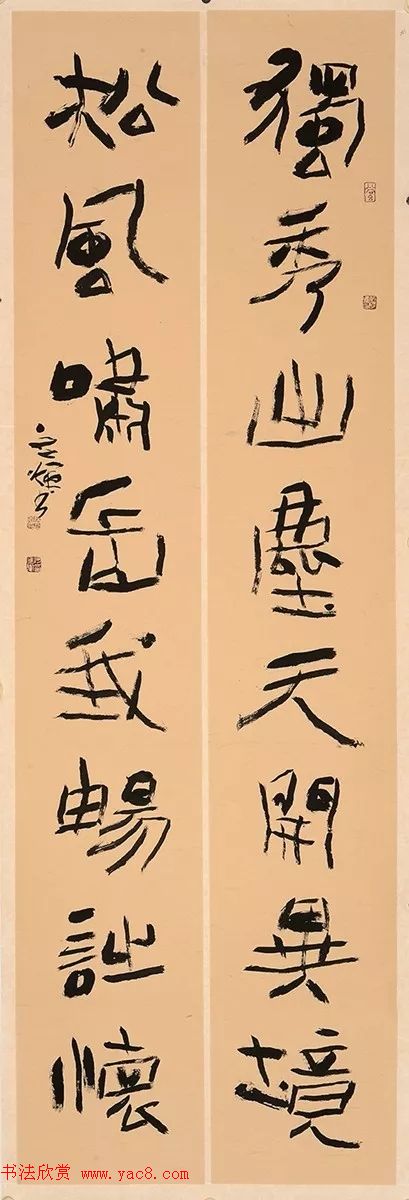 獨秀出塵天開異境
松風嘯岳我暢詩懷
书法欣赏 www.yac8.com